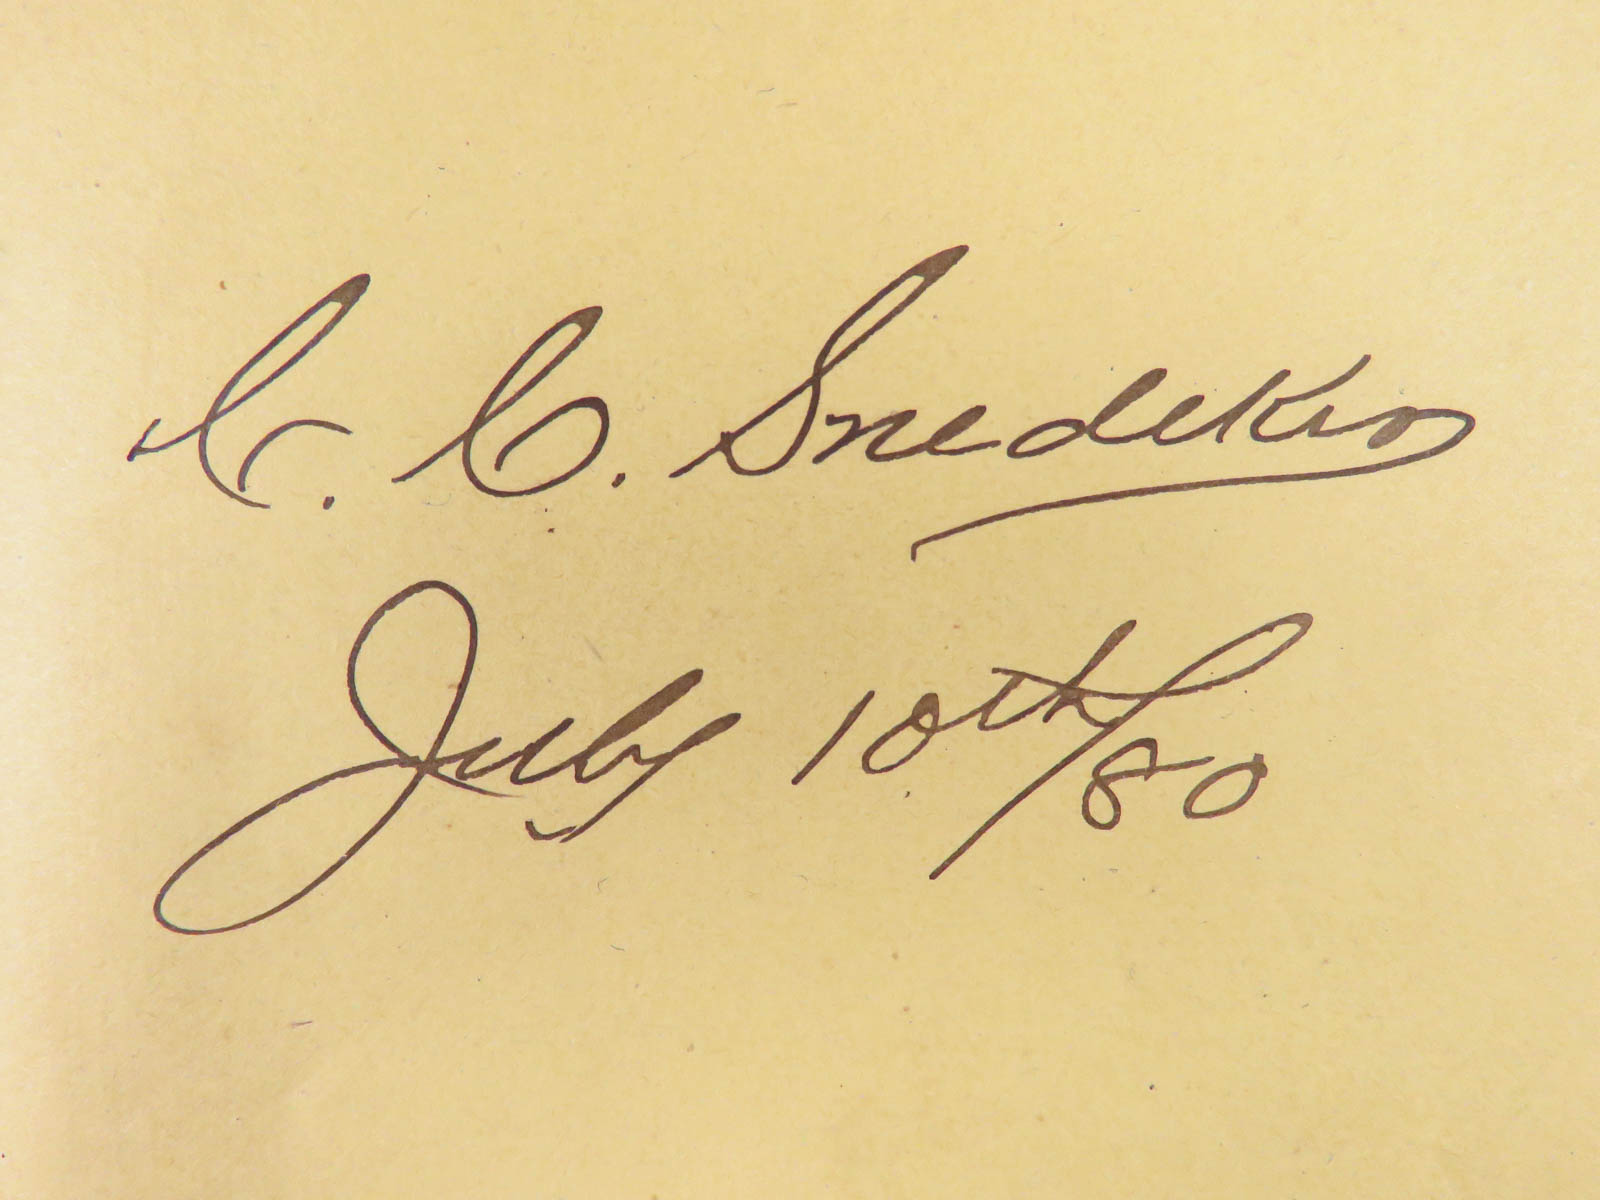 C. C. Snedeker
July 10th/80